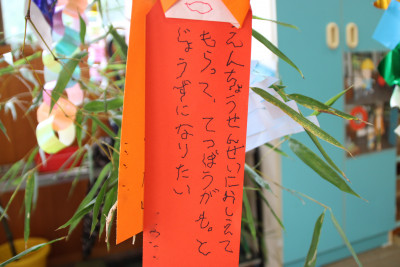 えんちょうせんせいにおしえて
もらって、てつぼうがも。と
じょうずになりたい